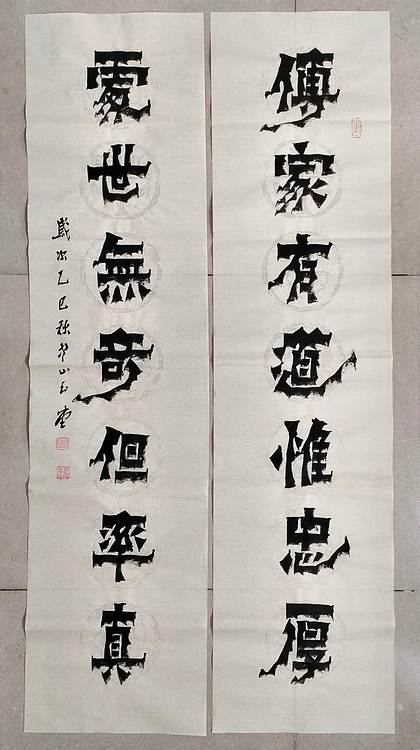 傳家有道惟忠厚
處世無奇但率真
歲次乙巳秋